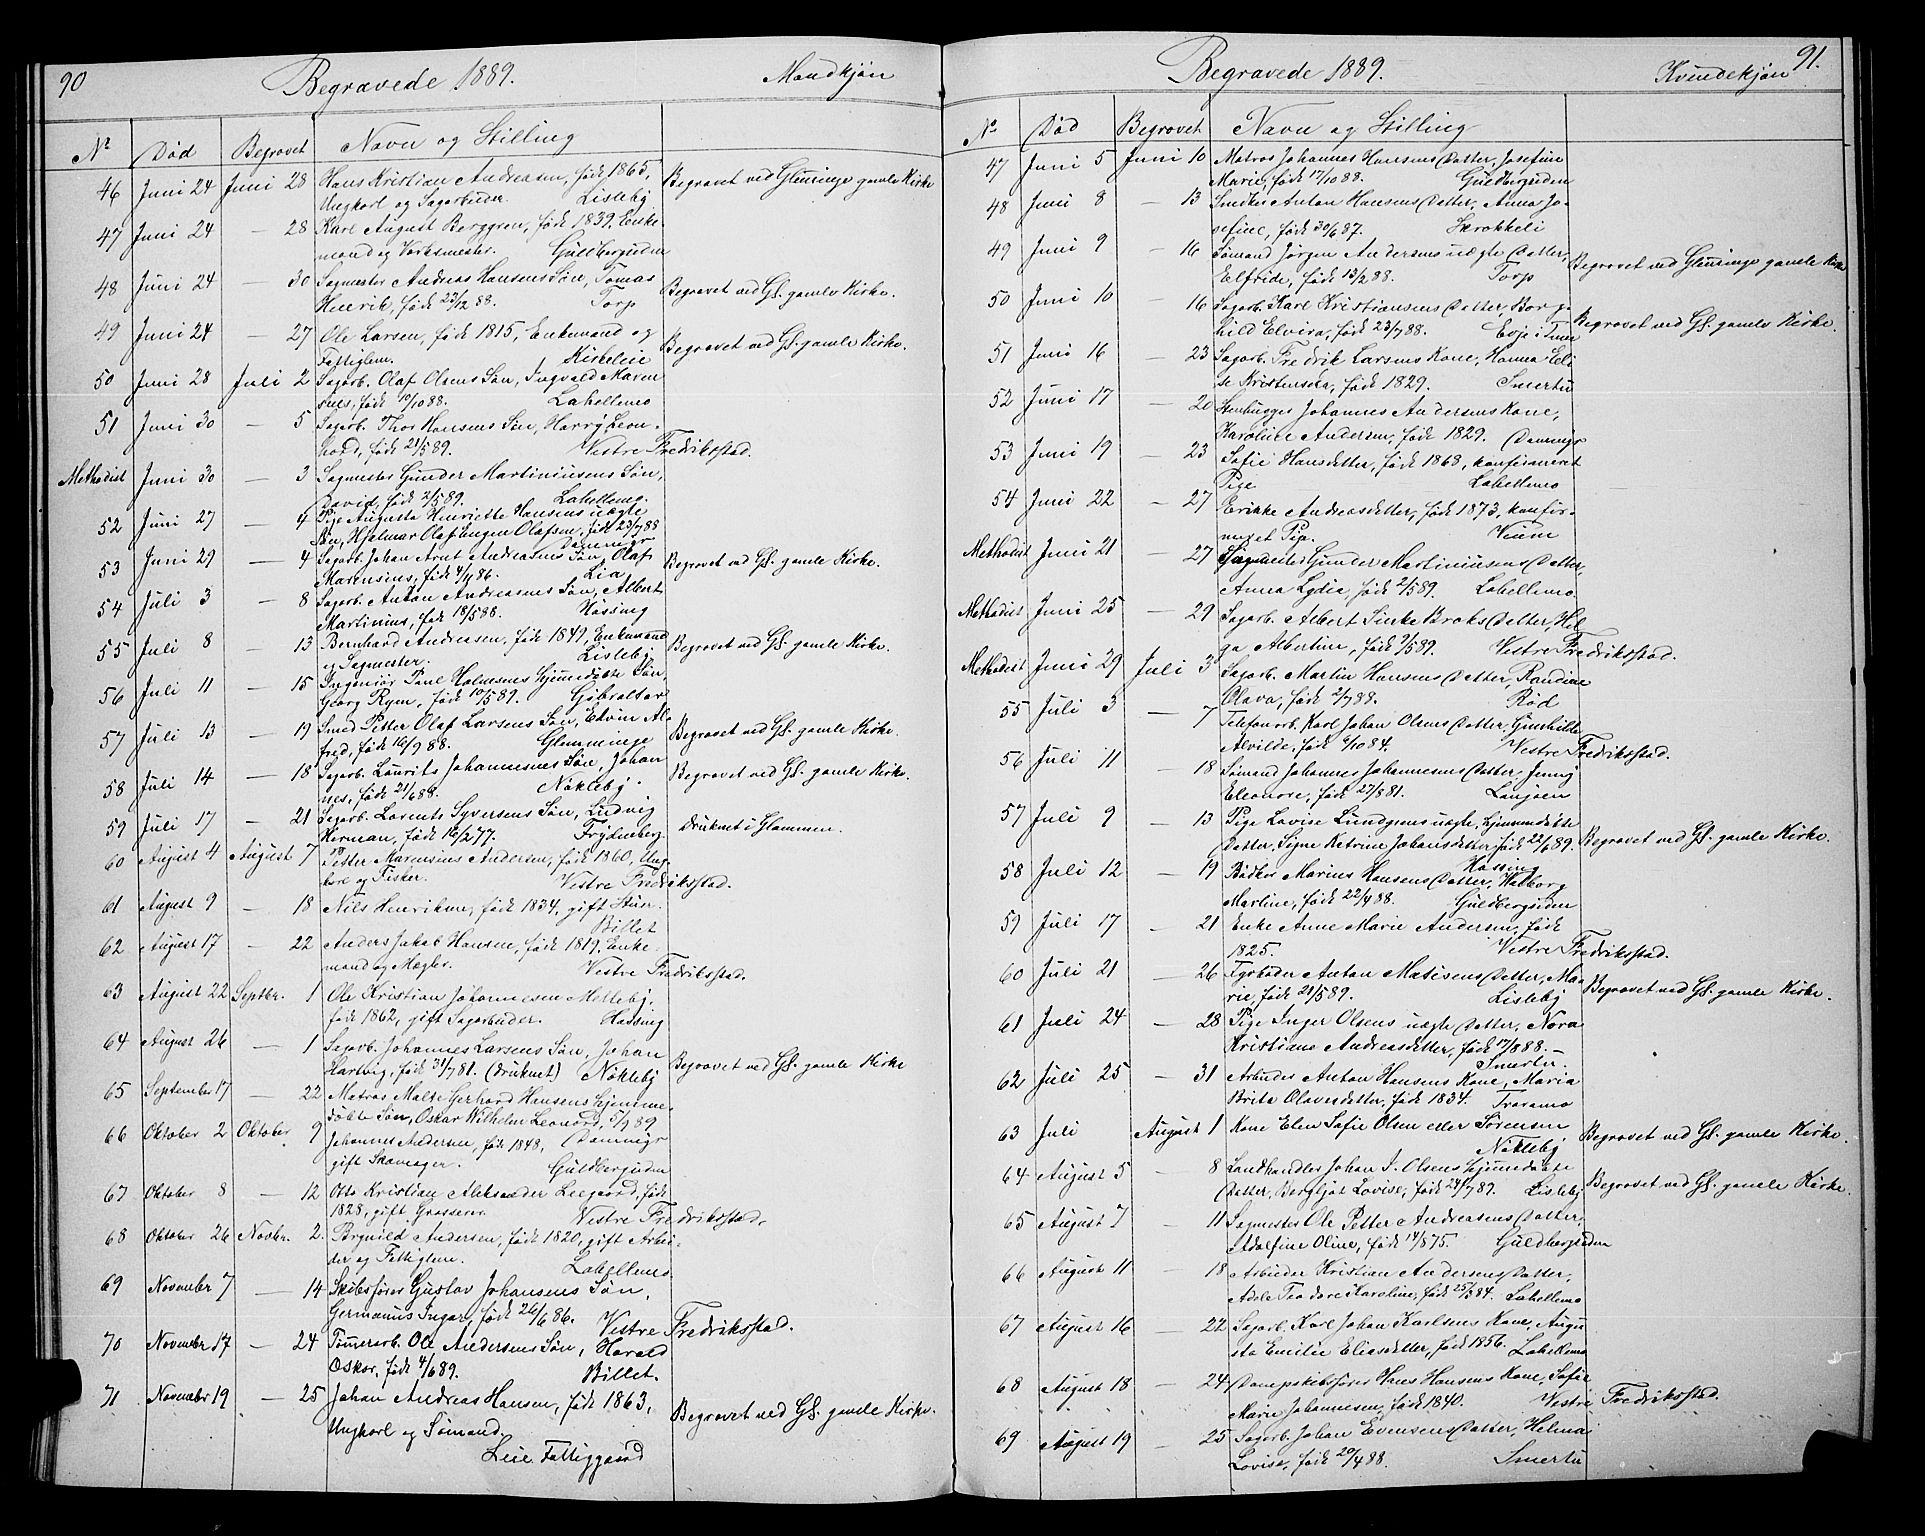 90
Begravede 1889.
Mandkjøn
Nº Død Begravet Navn og Stilling
46 Juni 24 Juni 28 Hans Kristian Andreasen, født 1865, Begravet ved Glemminge gamle Kirke
Ungkarl og Sagarbeider. Lisleby
47 Juni 24 — 28 Karl August Berggren, født 1839, Enke-
mand og Værksmester. Guldbergsiden
48 Juni 24 — 30 Sagmester Andreas Hansens Søn, Tomas Begravet ved Gl. gamle Kirke.
Henrik, født 23/2 88. Torp
49 Juni 24 — 27 Ole Larsen, født 1815, Enkemand og Begravet ved Gl. gamle Kirke.
Fattiglem. Kirkeleie
50 Juni 28 Juli 2 Sagarb. Olaf Olsens Søn, Ingvald Maren
sius, født 10/10 88. Lahellemo
51 Juni 30 — 5 Sagarb. Thor Hansens Søn, Harry Leon-
hard, født 21/5 89. Vestre Fredriksstad.
Methodist Juni 30 — 3 Sagmester Gunder Martiniusens Søn,
David, født 2/5 89. Lahellemo.
52 Juni 27 — 4 Pige Augusta Henriette Hansens uægte
Søn, Hjalmar Olaf Eugen Olafsen, født 23/7 88
Dammyr
53 Juni 29 — 4 Sagarb. Johan Arnt Andreasens Søn, Olaf Begravet ved Gl. gamle Kirke.
Marensius, født 4/11 86. Lia
54 Juli 3 — 8 Sagarb. Anton Andreasens Søn, Albert
Martinius, født 18/5 88. Hassing
55 Juli 8 — 13 Bernhard Andreasen, født 1849, Enkemand Begravet ved Gl. gamle Kirke.
og Sagmester. Lisleby
56 Juli 11 — 15 Ingeniør Paul Holmsens hjemmedøbte Søn,
Georg Rym, født 10/5 89. Gibraltar
57 Juli 13 — 19 Smed Petter Olaf Larsens Søn, Edvin Al- Begravet ved Gl. gamle Kirke.
fred, født 16/9 88. Glemminge
58 Juli 14 — 18 Sagarb. Laurits Johannesens Søn, Johan Begravet ved Gl. gamle Kirke.
nes, født 21/6 88. Nøkleby.
59 Juli 17 — 21 Sagarb. Lorents Syversens Søn, Ludvig druknet i Glommen.
Herman, født 16/2 77. Frydenberg.
60 August 4 August 7 Petter Marensius Andersen, født 1860, Ung-
karl og Fisker. Vestre Fredriksstad.
61 August 9 — 18 Nils Henriksen, født 1834, gift Stuer.
Billet
62 August 17 — 22 Anders Jakob Hansen, født 1819, Enke-
mand og Mægler. Vestre Fredriksstad.
63 August 22 Septbr. 1 Ole Kristian Johannesen Melleby,
født 1862, gift Sagarbeider. Hassing
64 August 26 — 1 Sagarb. Johannes Larsens Søn, Johan Begravet ved Gl. gamle Kirke
Hartvig, født 31/7 81. (druknet) Nøkleby
65 September 17 — 22 Matros Malte Gerhard Hansens hjemme-
døbte Søn, Oskar Wilhelm Leonard, 5/9 89
Dammyr
66 Oktober 2 Oktober 9 Johannes Andersen, født 1848,
gift Skomager. Guldbergsiden
67 Oktober 8 — 12 Otto Kristian Aleksander Leegaard, født
1828, gift Grosserer. Vestre Fredriksstad.
68 Oktober 26 Novbr. 2. Brynild Andersen, født 1820, gift Arbei-
der og Fattiglem. Lahellemo
69 November 7 — 14 Skibsfører Gustav Johansens Søn,
Germanus Ingar, født 26/6 86. Vestre Fredriksstad.
70 November 17 — 24 Tømmerarb. Ole Andersens Søn, Harald
Oskar, født 4/6 89. Billet.
71 November 19 — 25 Johan Andreas Hansen, født 1863, Begravet ved Gl. gamle Kirke.
Ungkarl og Sømand.
Leie Fattiggaard
91.
Begravede 1889.
Kvindekjøn
Nº Død Begravet Navn og Stilling
47 Juni 5 Juni 10 Matros Johannes Hansens Datter, Josefine
Marie, født 17/10 88. Guldbergsiden
48 Juni 8 — 13 Snedker Anton Hansens Datter, Anna Jo-
sefine, født 30/6 87. Skrokkeli
49 Juni 9 — 16 Sømand Jørgen Andersens uægte Datter, Begravet ved Glemminge gamle Kirke
Elfride, født 13/2 88. Torp
50 Juni 10 — 16 Sagarb. Karl Kristiansens Datter, Borg- Begravet ved Gl. gamle Kirke.
hild Elvira, født 23/7 88. Evje i Tune
51 Juni 16 — 23 Sagarb. Fredrik Larsens Kone, Hanna Eli
se Kristensdtr, født 1829. Smertu
52 Juni 17 — 20 Stenhugger Johannes Andersens Kone,
Karoline Andersen, født 1829. Dammyr
53 Juni 19 — 23 Sofie Hansdatter, født 1868, konfirmeret
Pige Lahellemo
54 Juni 22 — 27 Erikke Andreasdatter, født 1873, konfir-
meret Pige. Veum
Methodist Juni 21 — 27 Sagmester Gunder Martiniusens Datter,
Anna Lydia, født 2/5 89. Lahellemo
Methodist Juni 25 — 29 Sagarb. Albert Sinke Broks Datter, Hel
ga Albertine, født 9/5 89. Vestre Fredriksstad.
Methodist Juni 29 Juli 3 Sagarb. Martin Hansens Datter, Randine
Olava, født 2/7 88. Rød
55 Juli 3 — 7 Telefonarb. Karl Johan Olsens Datter, Gunhilde
Alvilde, født 6/10 84. Vestre Fredriksstad.
56 Juli 11 — 18 Sømand Johannes Johannesens Datter, Jenny
Eleonore, født 27/8 81. Langøen
57 Juli 9 — 13 Pige Lovise Lundgrens uægte, hjemmedøbte Begravet ved Gl. gamle Kirke.
Datter, Signe Katrine Johansdatter født 22/6 89.
Hassing
58 Juli 12 — 19 Bødker Marius Hansens Datter, Walborg
Martine, født 22/4 88. Guldbergsiden
59 Juli 17 — 21 Enke Anne Marie Andersen, født
1825. Vestre Fredriksstad.
60 Juli 21 — 26 Fyrbøder Anton Matisens Datter, Ma- Begravet ved Gl. gamle Kirke.
rie, født 21/5 89. Lisleby
61 Juli 24 — 28 Pige Inger Olsens uægte Datter, Nora
Kristiane Andreasdatter, født 17/8 88.
Smertu.
62 Juli 25 — 31 Arbeider Anton Hansens Kone, Maria
Brita Olavesdatter, født 1834. Traramo
63 Juli August 1 Kone Elen Sofie Olsen eller Sørensen Begravet ved Gl. gamle Kirke.
Nøkleby
64 August 5 — 8 Landhandler Johan J. Olsens hjemmedøbte Begravet ved Gl. gamle Kirke.
Datter, Bergljot Lovise, født 24/7 89. Lisleby
65 August 7 — 11 Sagmester Ole Petter Andreasens Datter,
Adolfine Oline, født 14/8 75. Guldbergsiden
66 August 11 — 18 Arbeider Kristian Andersens Datter,
Adele Teodore Karoline, født 25/3 84. Lahellemo
67 August 16 — 22 Sagarb. Karl Johan Karlsens Kone, Augu
sta Emilie Eliasdatter, født 1856. Lahellemo
68 August 18 — 24 Dampskibsfører Hans Hansens Kone, Sofie
Marie Johannesen, født 1840. Vestre Fredriksstad.
69 August 19 — 25 Sagarb. Johan Evensens Datter, Helma
Lovise, født 20/4 88. Smertu